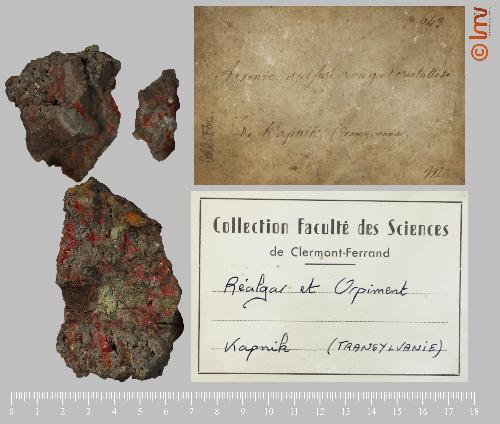 © lmv
643
Arsenic sulfuré rouge cristallisé
de Kapnik (Transylvanie)
Collection Faculté des Sciences
de Clermont-Ferrand
Réalgar et Orpiment
Kapnik (TRANSYLVANIE)
0 1 2 3 4 5 6 7 8 9 10 11 12 13 14 15 16 17 18